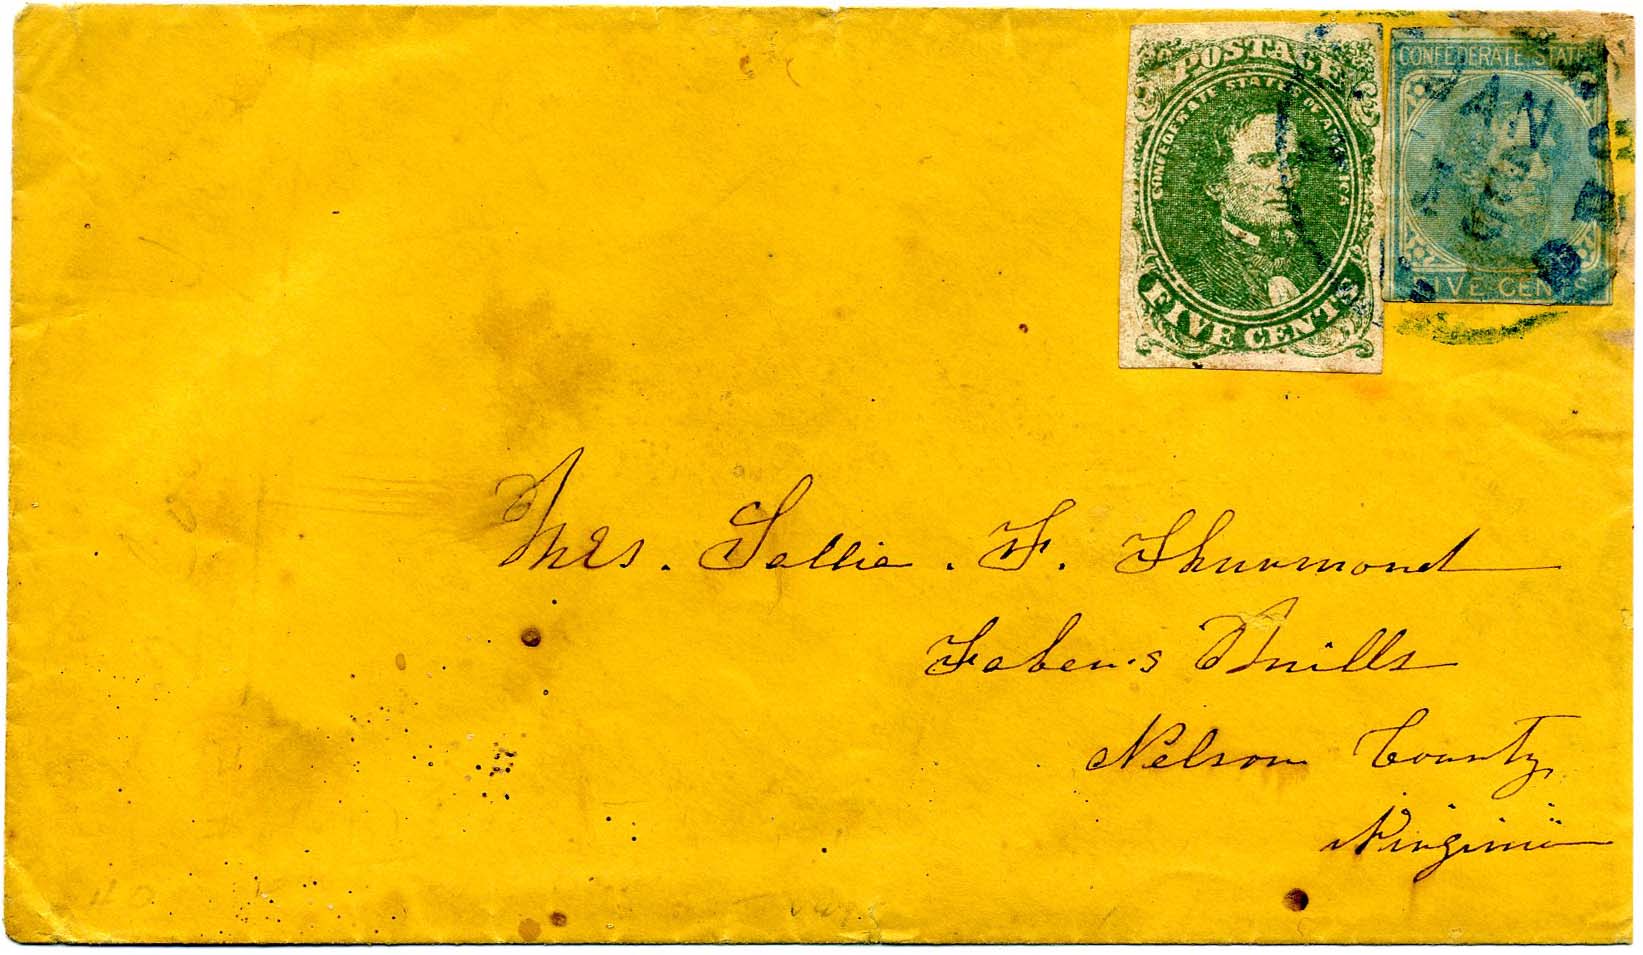 POSTAGE
CONFEDERATE STATES OF AMERICA
FIVE CENTS
CONFEDERATE STATES
JAN
FIVE CENTS
Mrs. Sallie. F. Thurmond
Faber's Mills
Nelson County
Virginia